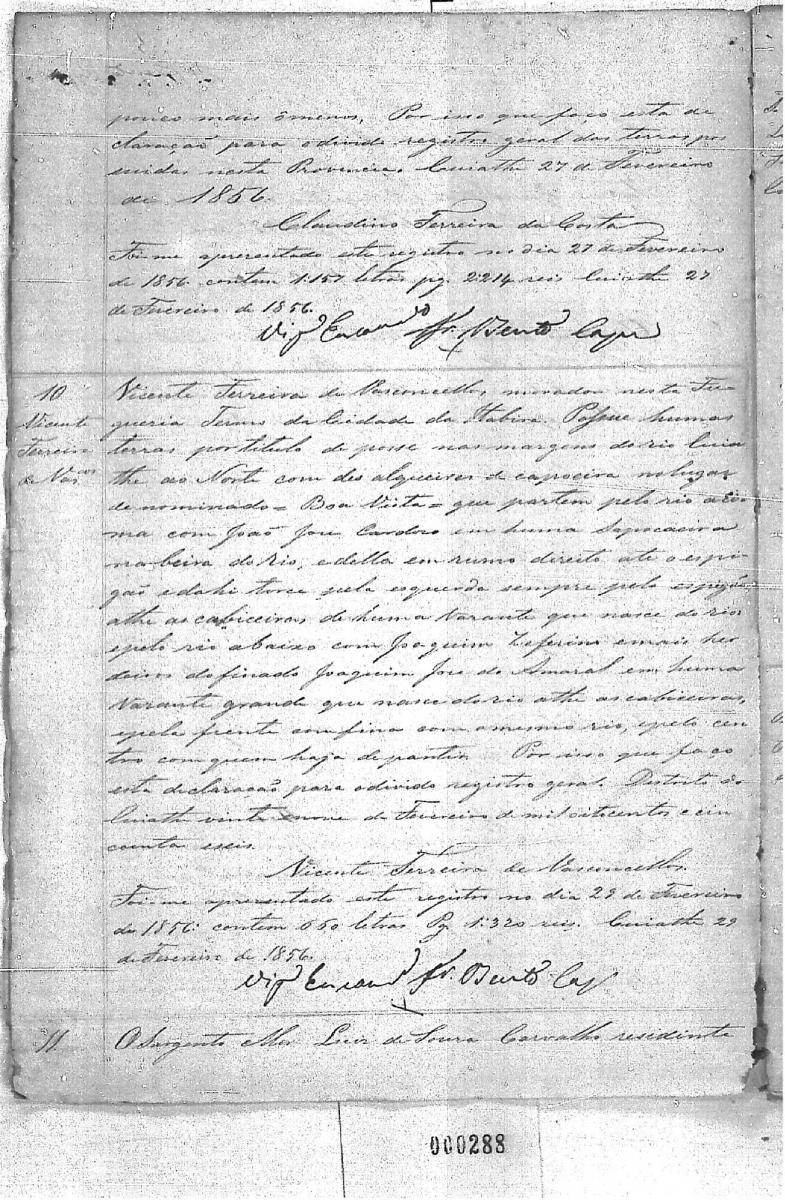 pouco mais ômenos. Por isso que faço esta de
claração para odivido registro geral das terras pos
suidas nesta Provincia. Cuiathe 27 de Fevereiro
de 1856.
Claudino Ferreira da Costa
Foi me apresentado este registro no dia 27 de Fevereiro
de 1856. contem 1:157 letras pg. 2:214 reis Cuiathe 27
de Fevereiro de 1856.
Vigr.o Encomend.o Fr. Bento
10 Vicente Ferreira de Vasconcellos, morador nesta Fre
Vicente gueria Termo da Cidade da Itabira. Possue humas
Ferreira terras por titulo de posse nas margens do rio Cuia
de Vas.cos the ao Norte com des alqueires de capoeira no lugar
de nominado = Boa Vista = que partem pelo rio aci
ma com João Jose Cardozo em huma Sapocaeira
na beira do rio, e della em rumo direito ate o espi
gão e dahi torce pela esquerda sempre pelo espigão
athe as cabiceiras de huma Varante que nasce do rio
epelo rio abaixo com Joaquim Zeferino emais her
deiros dofinado Joaquim Jose do Amaral em huma
Varante grande que nasce do rio athe as cabiceiras,
epela frente com fina com omesmo rio, epelo cen
tro com quem haja de partir. Por isso que faço
esta declaração para odivido registro geral. Destrito do
Cuiathe vinte enove de Fevereiro de mil oitocentos e cin
coenta eseis.
Vicente Ferreira de Vasconcellos.
Foi me apresentado este registro no dia 29 de Fevereiro
de 1856. contem 660 letras Pg 1:320 reis. Cuiathe 29
de Fevereiro de 1856.
Vigr.o Encomend.o Fr. Bento
11. O Sargento Mor Luiz de Souza Carvalho residente
000288